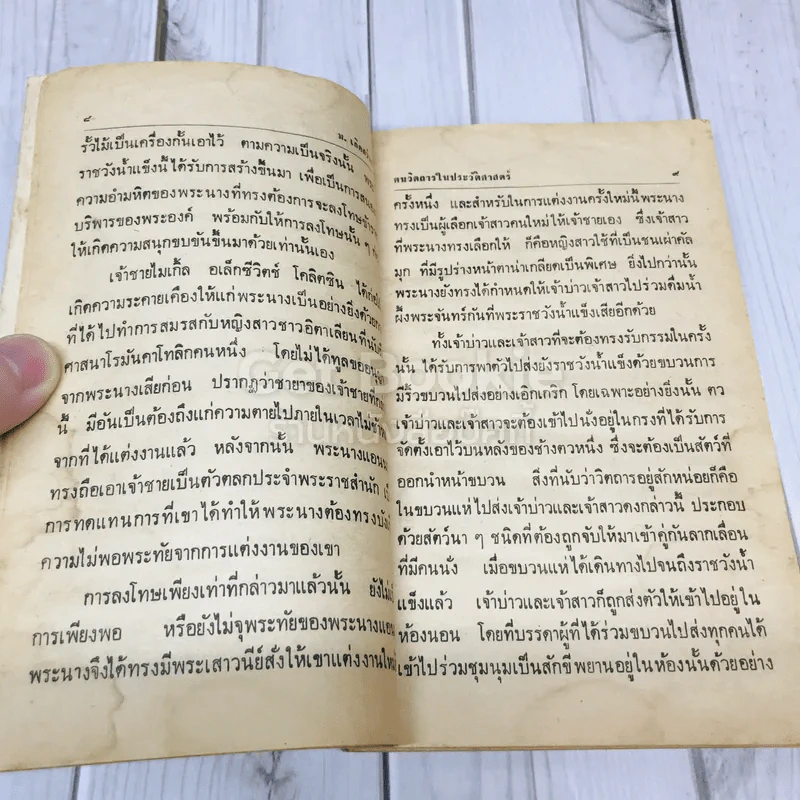 ๘
ม. เกิดสว
รั้วไม้เป็นเครื่องกั้นเอาไว้ ตามความเป็นจริงนั้น
ราชวังน้ำแข็งนี้ได้รับการสร้างขึ้นมา เพื่อเป็นการสนอง
ความอำมหิตของพระนางที่ทรงต้องการจะลงโทษ
บริพารของพระองค์ พร้อมกับให้การลงโทษนั้น ๆ
ให้เกิดความสนุกขบขันขึ้นมาด้วยเท่านั้นเอง
เจ้าชายไมเกิ้ล อเล็กซีวิตช์ โคลิตซิน ได้ก่อ
เกิดความระคายเคืองให้แก่พระนางเป็นอย่างยิ่งด้วย
ที่ได้ไปทำการสมรสกับหญิงสาวชาวอิตาเลียนที่นับ
ศาสนาโรมันคาโทลิกคนหนึ่ง โดยไม่ได้ทูลขอ
จากพระนางเสียก่อน ปรากฏว่าชายาของเจ้าชาย
นี้ มีอันเป็นต้องถึงแก่ความตายไปภายในเวลาไม่
จากที่ได้แต่งงานแล้ว หลังจากนั้น พระนางแอน
ทรงถือเอาเจ้าชายเป็นตัวตลกประจำพระราชสำนัก
การทดแทนการที่เขาได้ทำให้พระนางต้องทรงบัง
ความไม่พอพระทัยจากการแต่งงานของเขา
การลงโทษเพียงเท่าที่กล่าวมาแล้วนั้น ยังไม่
การเพียงพอ หรือยังไม่จุพระทัยของพระนางแอน
พระนางจึงได้ทรงมีพระเสาวนีย์สั่งให้เขาแต่งงานใหม่
คนวิตถารในประวัติศาสตร์ ๙
ครั้งหนึ่ง และสำหรับในการแต่งงานครั้งใหม่นี้พระนาง
ทรงเป็นผู้เลือกเจ้าสาวคนใหม่ให้เจ้าชายเอง ซึ่งเจ้าสาว
ที่พระนางทรงเลือกให้ ก็คือหญิงสาวใช้ที่เป็นชนเผ่าคัล
มุก ที่มีรูปร่างหน้าตาน่าเกลียดเป็นพิเศษ ยิ่งไปกว่านั้น
พระนางยังทรงได้กำหนดให้เจ้าบ่าวเจ้าสาวไปร่วมดื่มน้ำ
ผึ้งพระจันทร์กันที่พระราชวังน้ำแข็งเสียอีกด้วย
ทั้งเจ้าบ่าวและเจ้าสาวที่จะต้องทรงรับกรรมในครั้ง
นั้น ได้รับการพาตัวไปส่งยังราชวังน้ำแข็งด้วยขบวนการ
มีริ้วขบวนไปส่งอย่างเอิกเกริก โดยเฉพาะอย่างยิ่งนั้น ตัว
เจ้าบ่าวและเจ้าสาวจะต้องเข้าไปนั่งอยู่ในกรงที่ได้รับการ
จัดตั้งเอาไว้บนหลังของช้างตัวหนึ่ง ซึ่งจะต้องเป็นสัตว์ที่
ออกนำหน้าขบวน สิ่งที่นับว่าวิตถารอยู่สักหน่อยก็คือ
ในขบวนแห่ไปส่งเจ้าบ่าวและเจ้าสาวดังกล่าวนี้ ประกอบ
ด้วยสัตว์นา ๆ ชนิดที่ต้องถูกจับให้มาเข้าคู่กันลากเลื่อน
ที่มีคนนั่ง เมื่อขบวนแห่ได้เดินทางไปจนถึงราชวังน้ำ
แข็งแล้ว เจ้าบ่าวและเจ้าสาวก็ถูกส่งตัวให้เข้าไปอยู่ใน
ห้องนอน โดยที่บรรดาผู้ที่ได้ร่วมขบวนไปส่งทุกคนได้
เข้าไปร่วมชุมนุมเป็นสักขีพยานอยู่ในห้องนั้นด้วยอย่าง